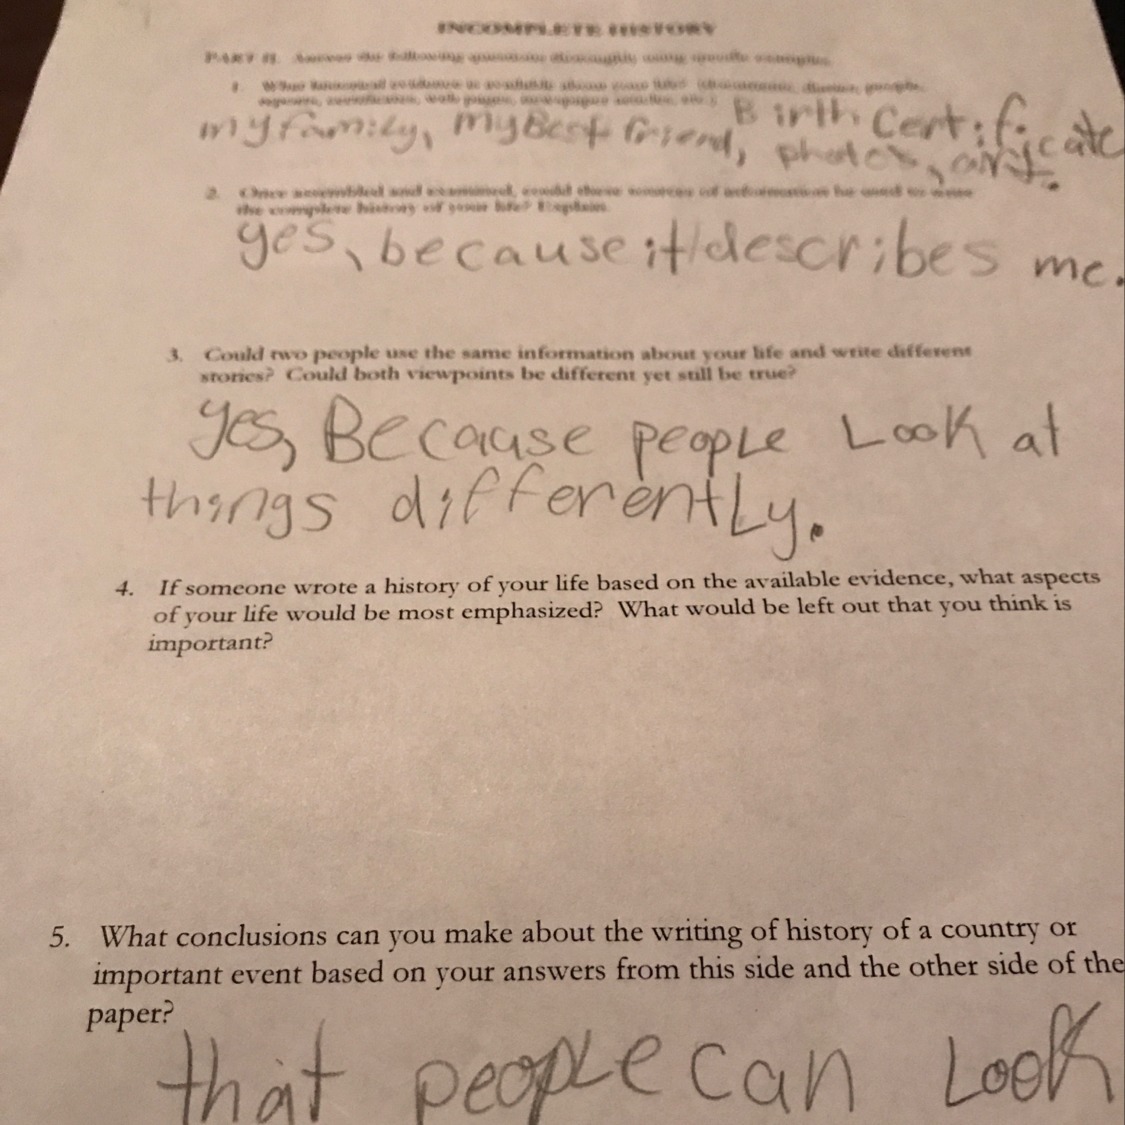 INCOMPLETE HISTORY
PART II. Answer the following questions thoroughly using specific examples.
1. What historical evidence is available about your life? (documents, diaries, people,
Birth Certificate
my family, my Best friend, photos, art.
2. Once assembled and examined, could these sources of information be used to write
the complete history of your life? Explain.
yes, because it describes me.
3. Could two people use the same information about your life and write different
stories? Could both viewpoints be different yet still be true?
yes, Because people Look at
things differently.
4. If someone wrote a history of your life based on the available evidence, what aspects
of your life would be most emphasized? What would be left out that you think is
important?
5. What conclusions can you make about the writing of history of a country or
important event based on your answers from this side and the other side of the
paper?
that people can Look